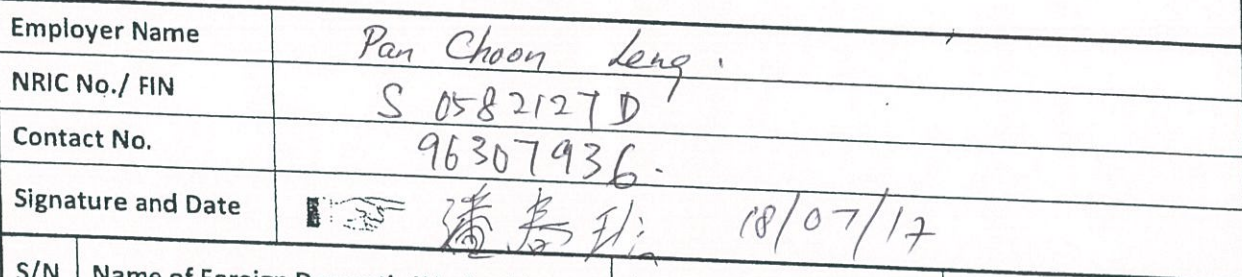 Employer Name Pan Choon Leng.
NRIC No./ FIN S 0582127D
Contact No. 96307936.
Signature and Date 潘春 18/07/17
S/N Name of Foreign